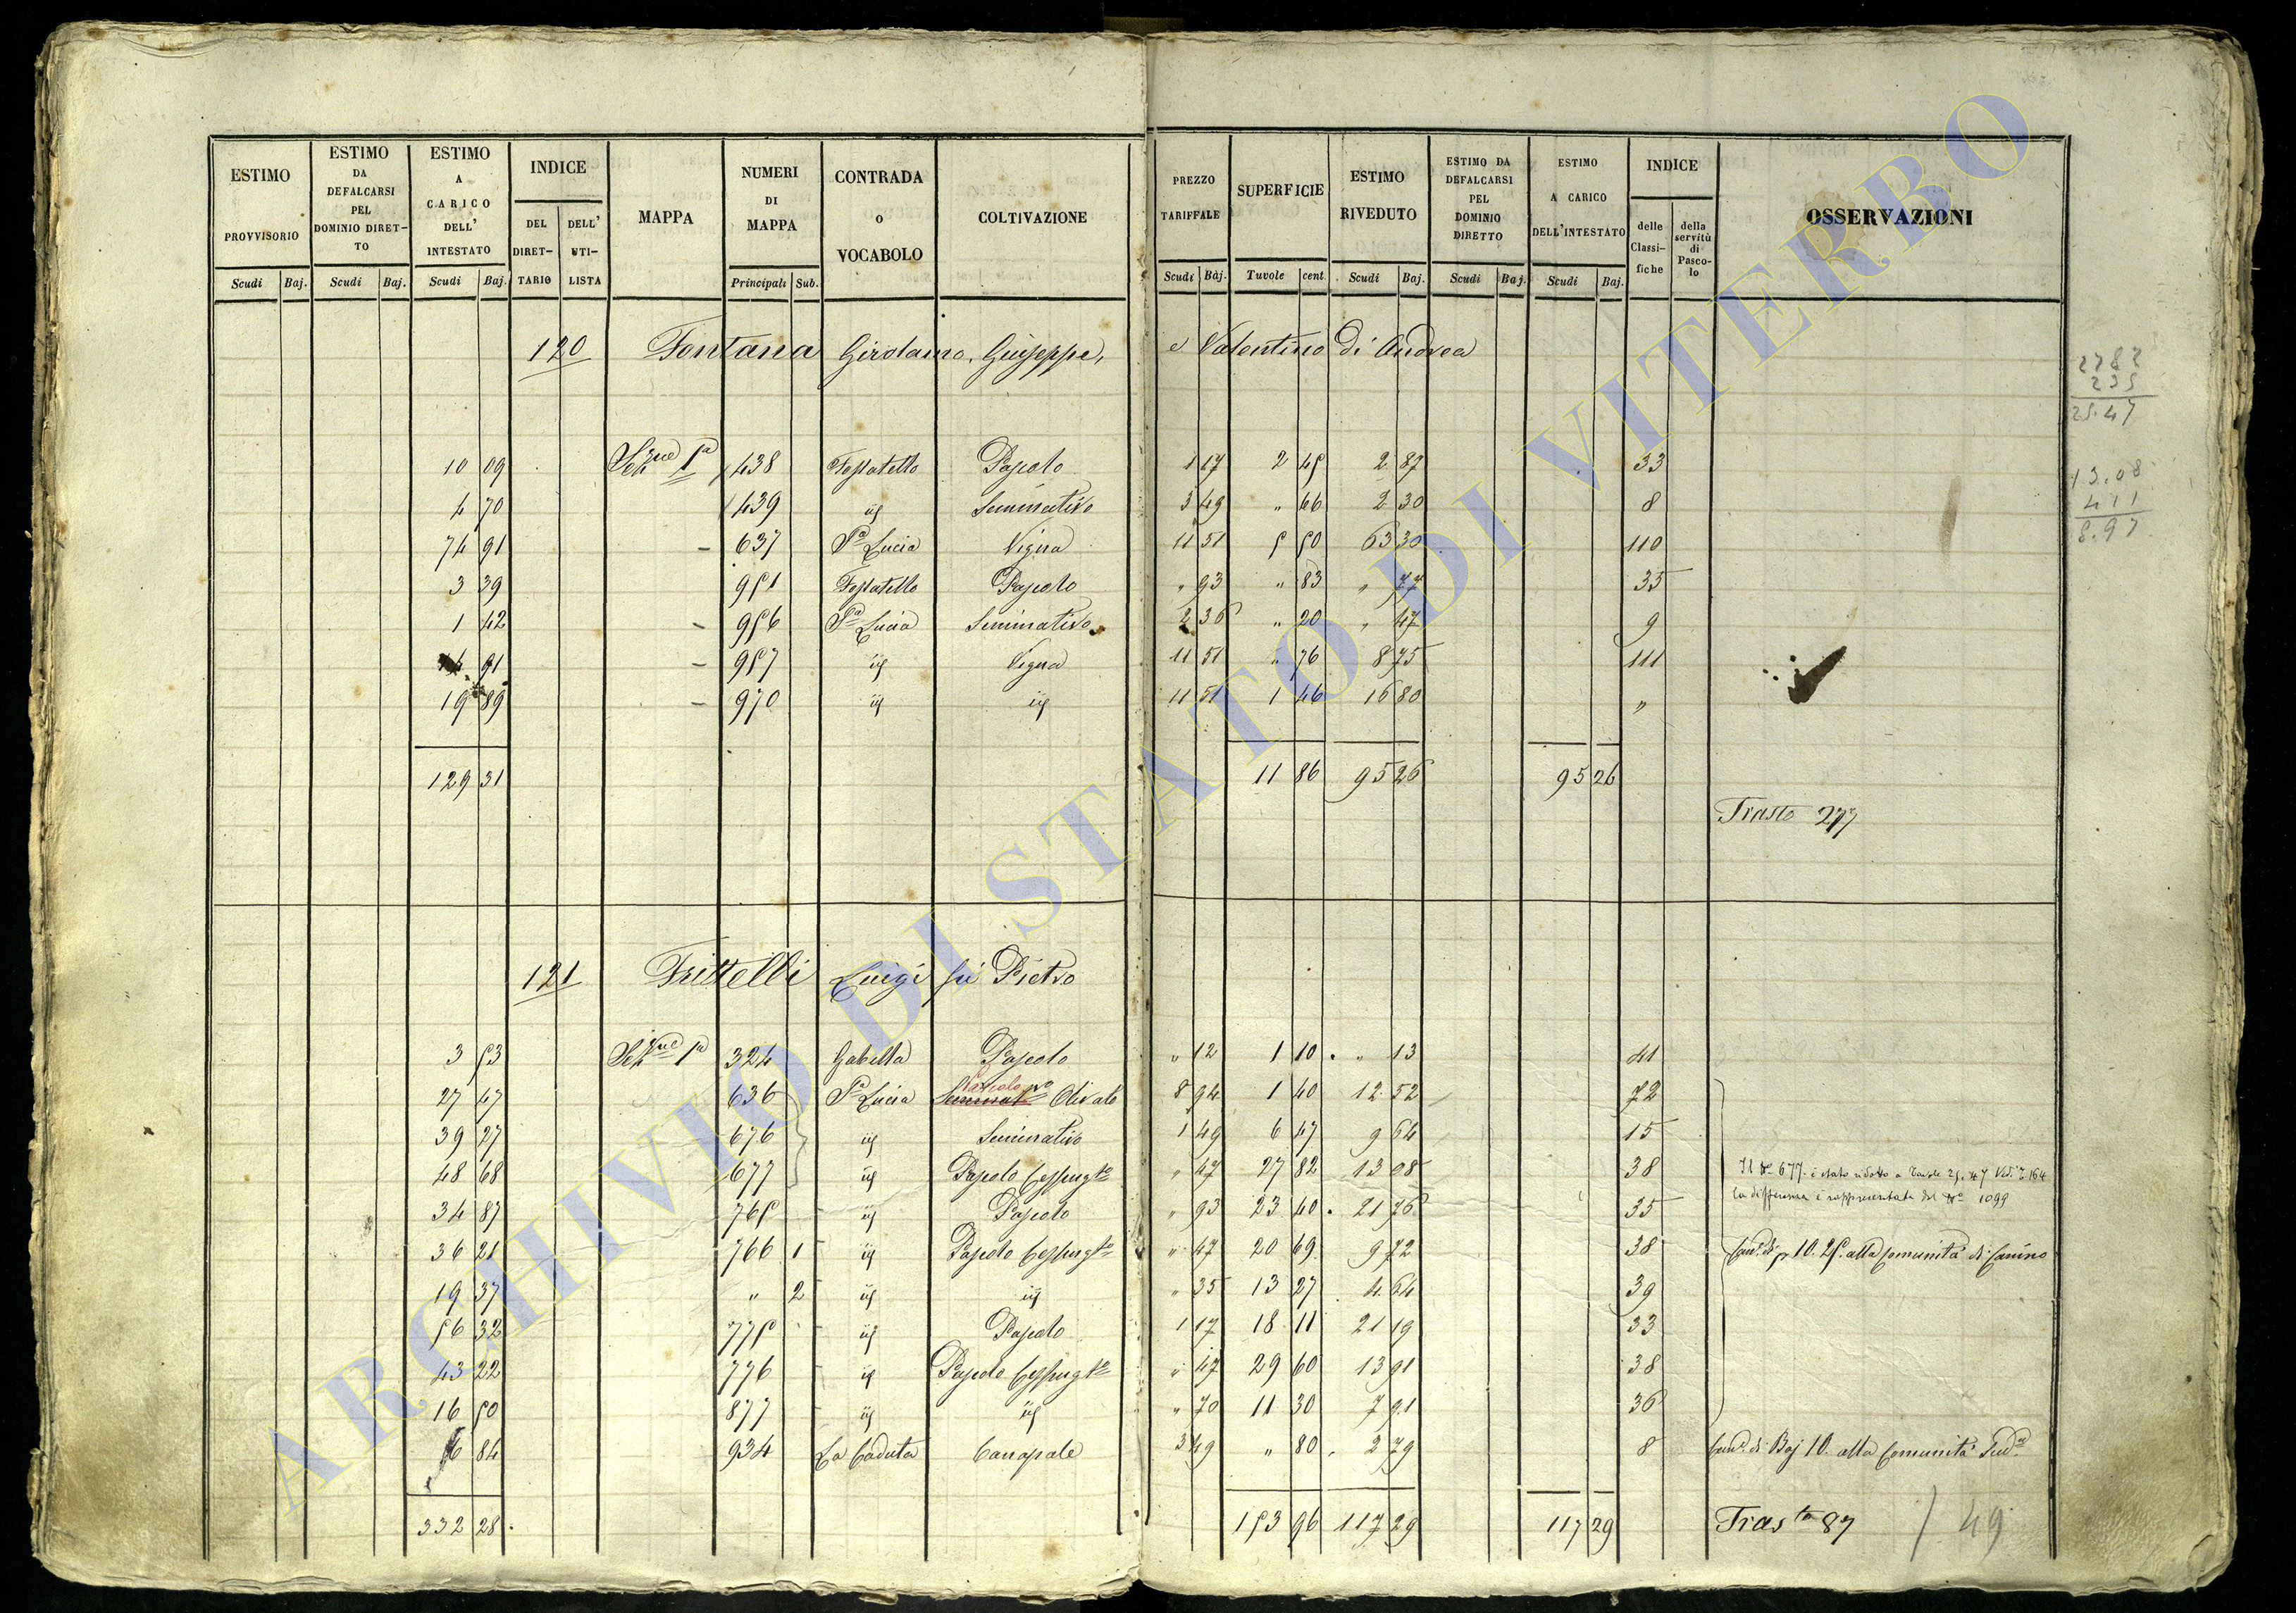 ESTIMO PROVVISORIO
ESTIMO DA DEFALCARSI PEL DOMINIO DIRETTO
ESTIMO A CARICO DELL' INTESTATO
INDICE
DEL DIRETTARIO
DELL' UTILISTA
MAPPA
NUMERI DI MAPPA
CONTRADA o VOCABOLO
COLTIVAZIONE
PREZZO TARIFFALE
SUPERFICIE
ESTIMO RIVEDUTO
ESTIMO DA DEFALCARSI PEL DOMINIO DIRETTO
ESTIMO A CARICO DELL'INTESTATO
INDICE
delle Classifiche
della servitù di Pascolo
OSSERVAZIONI
Scudi Baj. Scudi Baj. Scudi Baj. Principali Sub. Scudi Baj. Tavole cent. Scudi Baj. Scudi Baj. Scudi Baj.
120 Fontana Girolamo, Giuseppe, e Valentino di Andrea
10 09 Sezne 1a 438 Fossatello Pascolo 1 17 2 45 2 87 33
4 70 439 id Seminativo 3 49 " 66 2 30 8
74 91 637 Sa Lucia Vigna 11 51 5 50 63 30 110
3 39 951 Fossatello Pascolo " 93 " 83 " 77 35
1 42 956 Sa Lucia Seminativo 2 36 " 20 " 47 9
91 957 id Vigna 11 51 " 76 8 75 111
19 89 970 id id 11 51 1 46 16 80 "
129 31 11 86 95 26 95 26
Trasto 277
121 Frittelli Luigi fu Pietro
3 53 Sezne 1a 324 Gabella Pascolo " 12 1 10 " 13 41
27 47 636 Sa Lucia Seminatvo Pascolo Olivato 8 94 1 40 12 52 72
39 27 676 id Seminativo 1 49 6 47 9 64 15
48 68 677 id Pascolo Cespugto " 47 27 82 13 08 38 Il No 677 è stato ridotto a Tavole 25.47 Vedi T. 164
la differenza è rappresentata dal No 1099
34 87 765 id Pascolo " 93 23 40 21 76 35
36 21 766 1 id Pascolo Cespugto " 47 20 69 9 72 38 Cane di 10.25 alla Comunità di Canino
19 37 " 2 id id " 35 13 27 4 64 39
56 32 775 id Pascolo 1 17 18 11 21 19 33
43 22 776 id Pascolo Cespugto " 47 29 60 13 91 38
16 50 877 id id " 70 11 30 7 91 36
6 84 934 La Caduta Canapale 3 49 " 80 2 79 8 Cane di Baj 10 alla Comunità Suda
332 28 153 96 117 29 117 29 Trasto 87 / 49
2782
235
25.47
13.08
4 11
8.97
ARCHIVIO DI STATO DI VITERBO